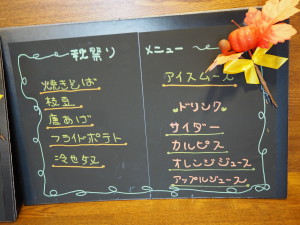 秋祭り
焼きそば
枝豆
唐あげ
フライドポテト
冷やっこ
メニュー
アイスムース
ドリンク
サイダー
カルピス
オレンジジュース
アップルジュース